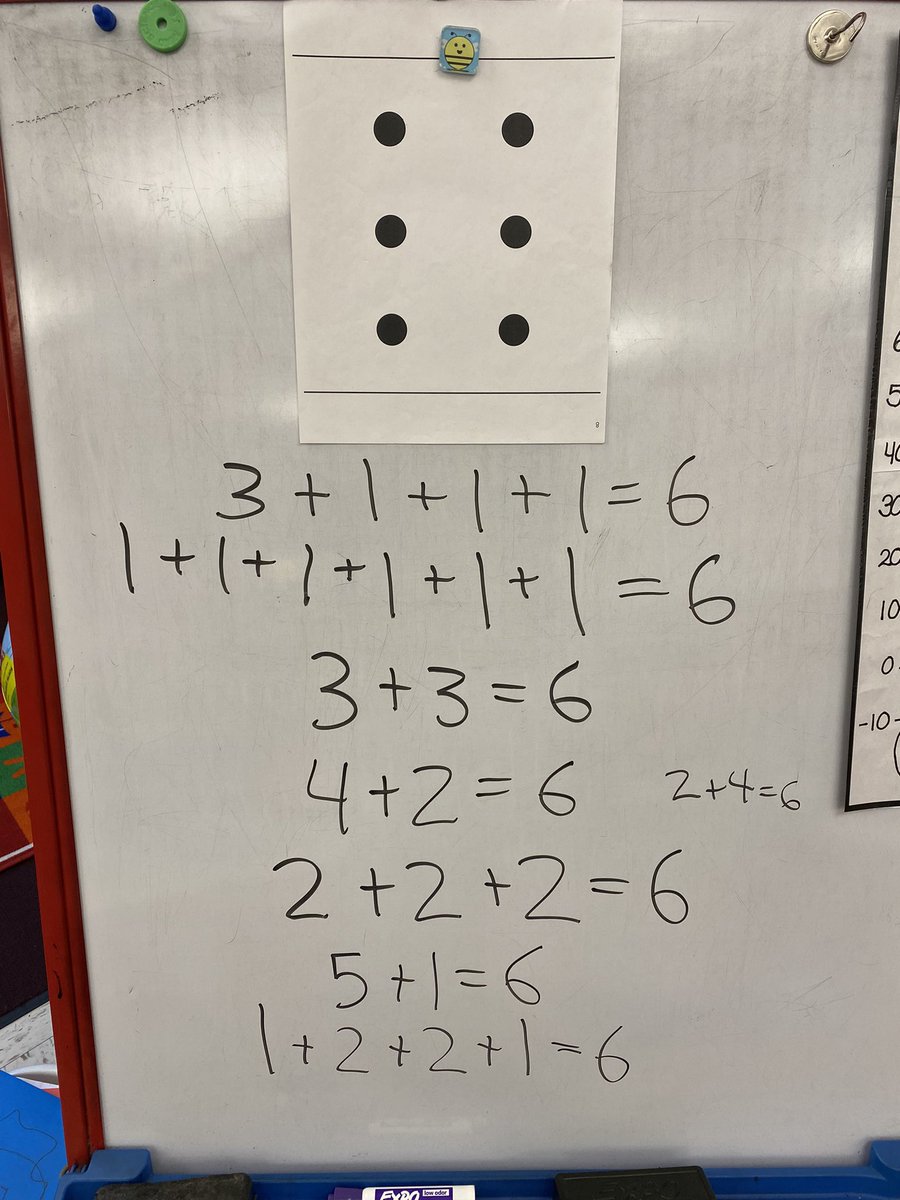 8
3 + 1 + 1 + 1 = 6
1 + 1 + 1 + 1 + 1 + 1 = 6
3 + 3 = 6
4 + 2 = 6
2 + 4 = 6
2 + 2 + 2 = 6
5 + 1 = 6
1 + 2 + 2 + 1 = 6
50
40
30
20
10
0
-10
EXPO low odor